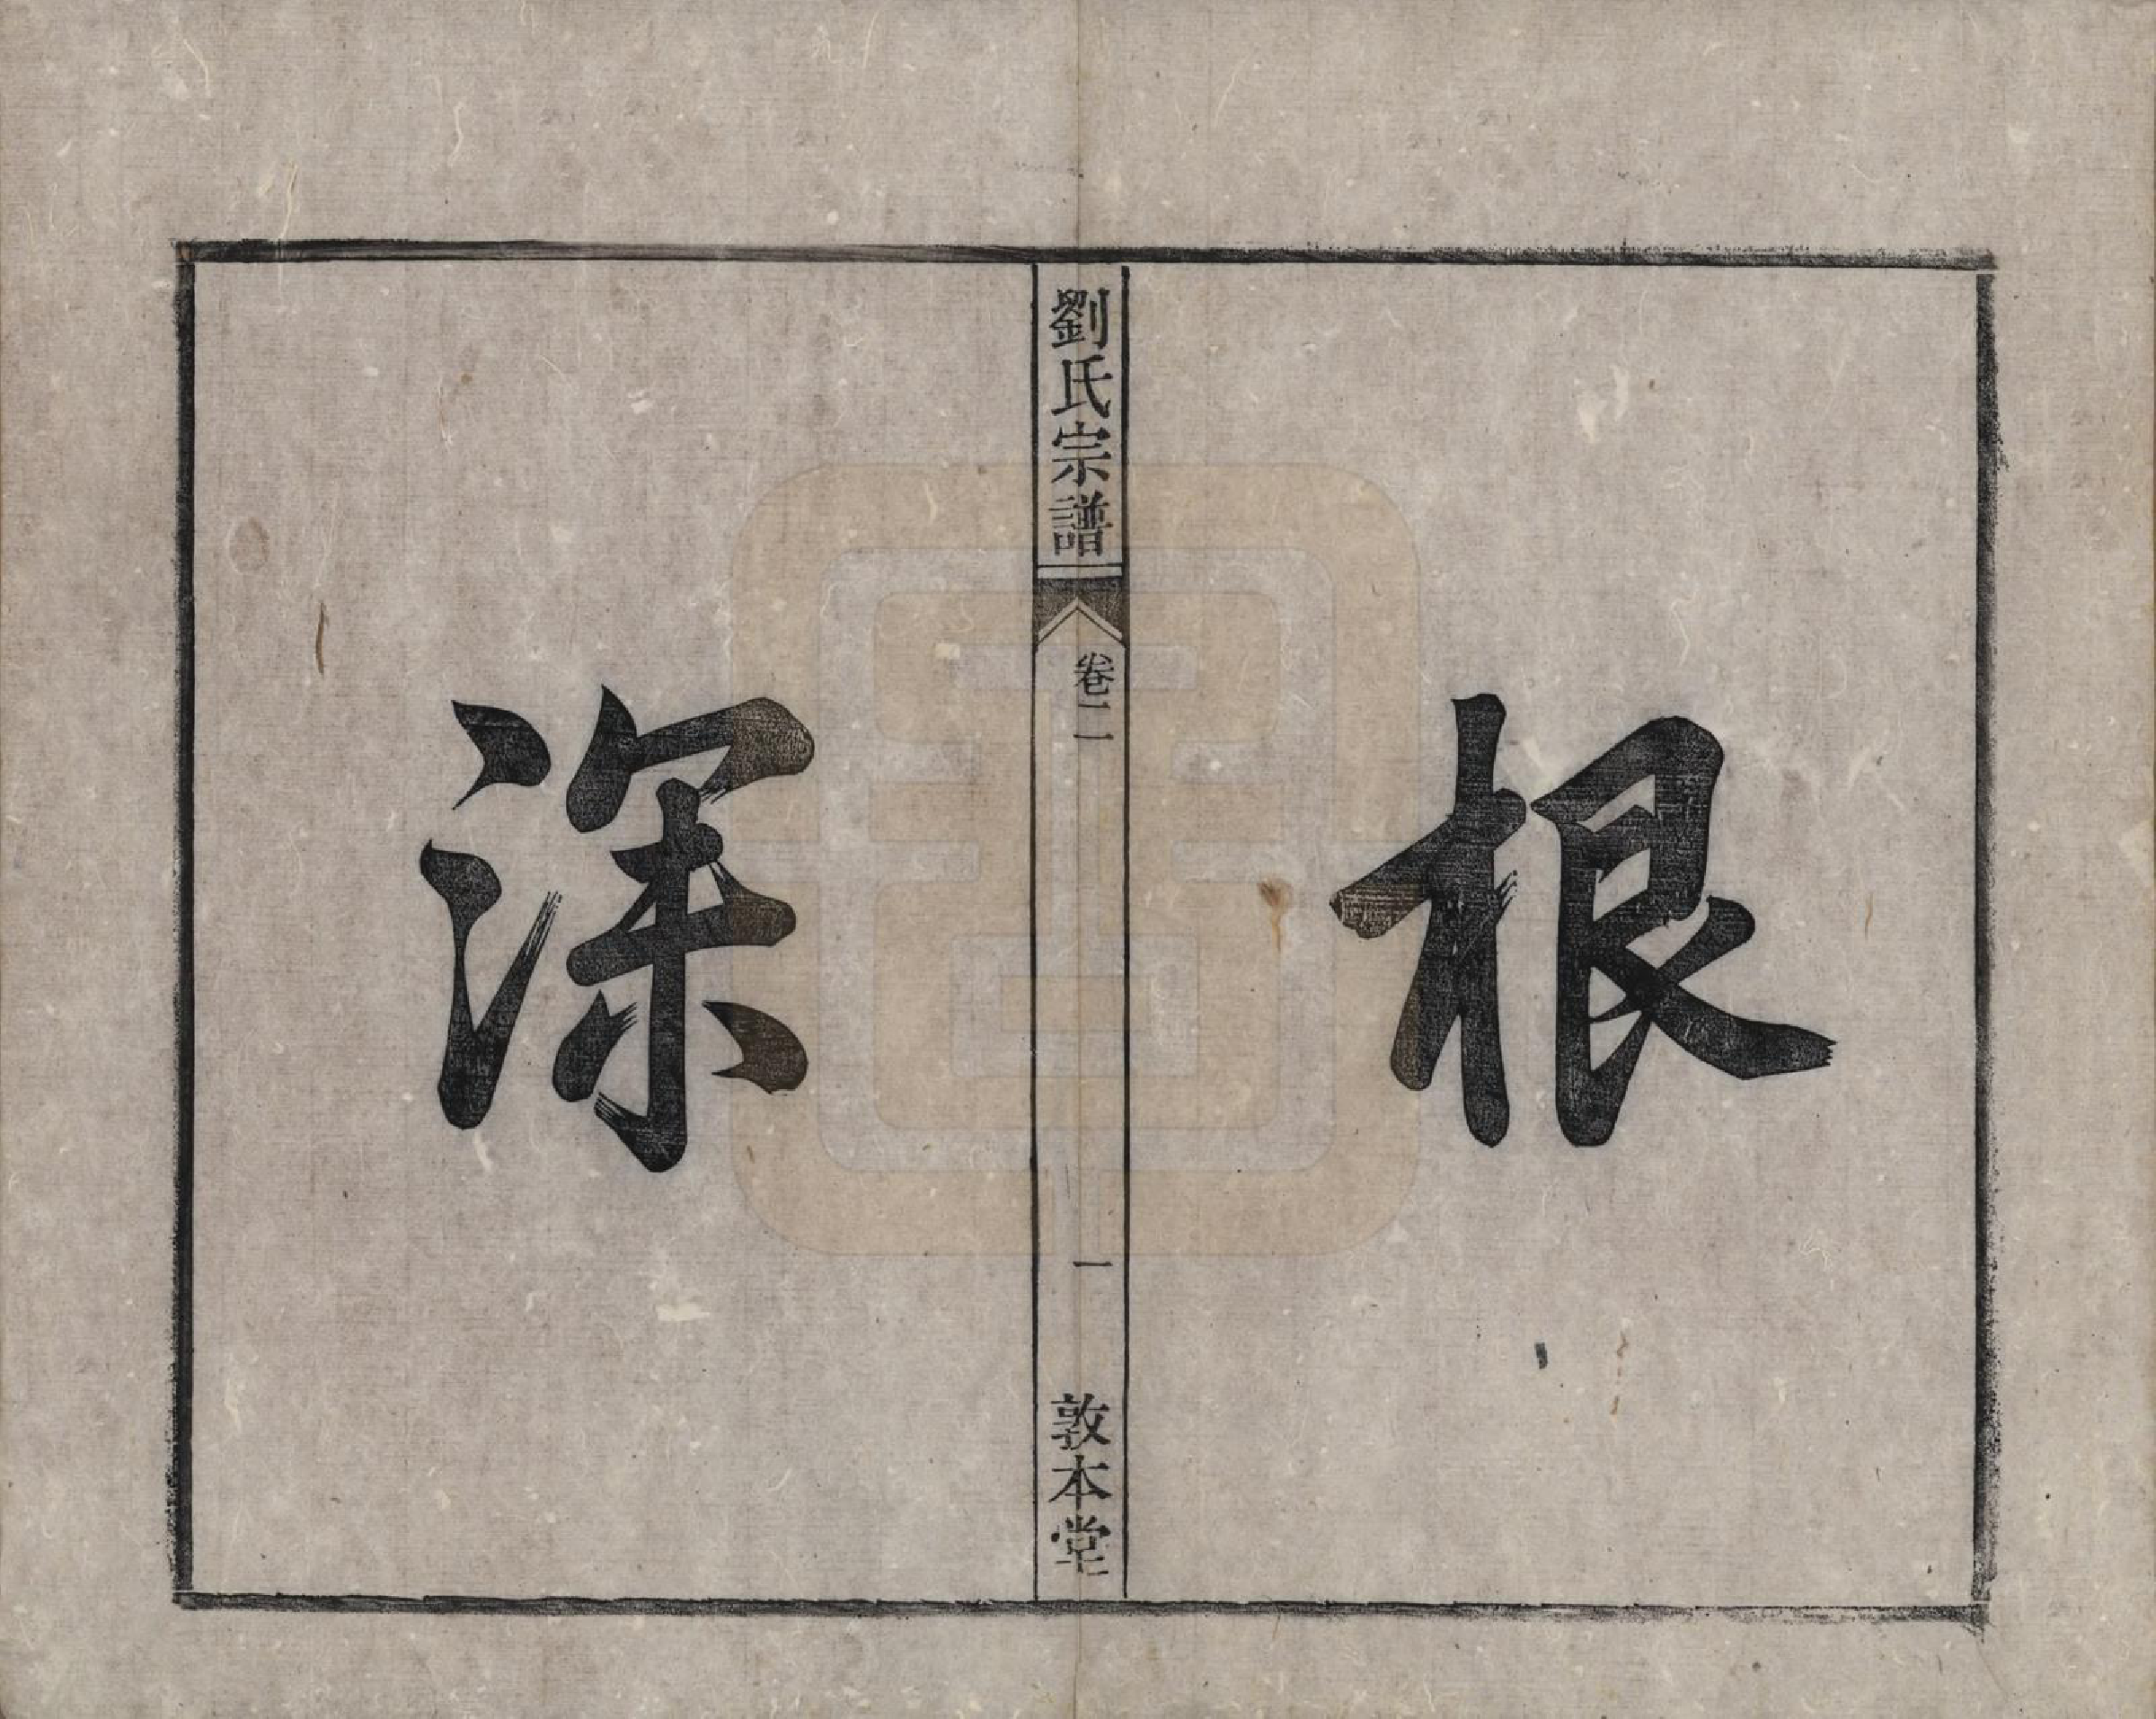 根
劉氏宗譜
卷二
一
敦本堂
深